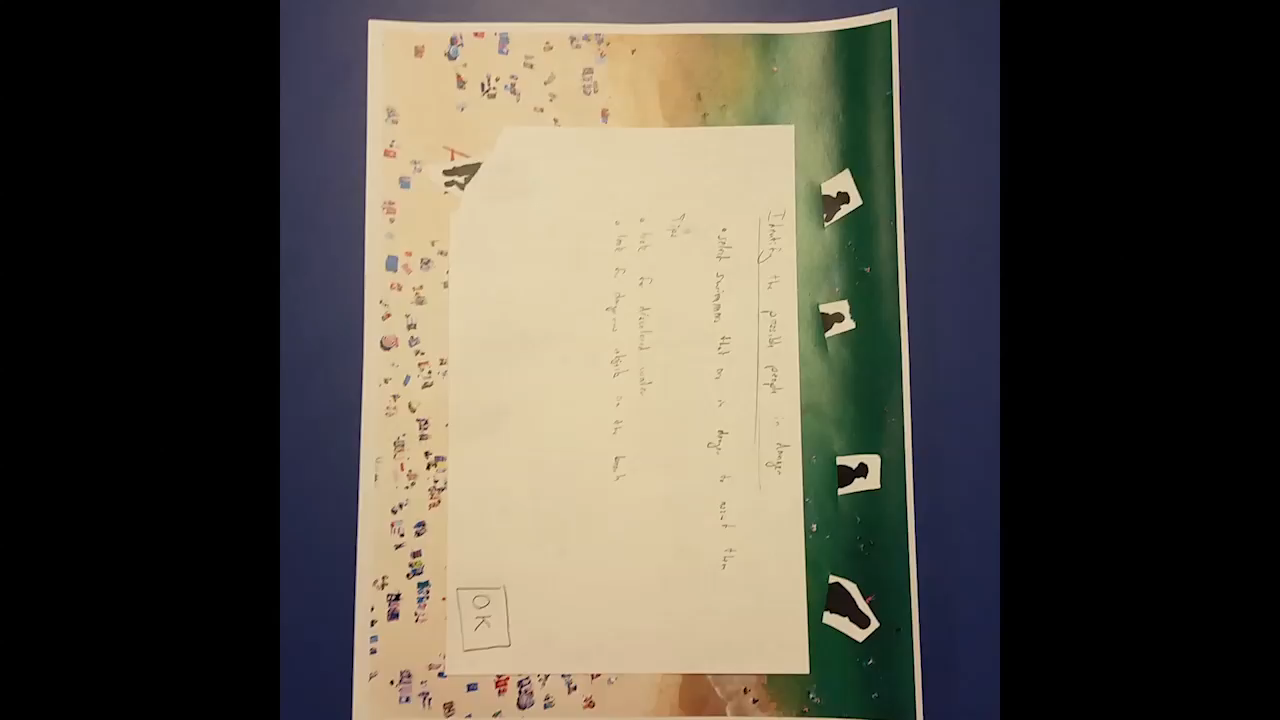 Identify the possible people in danger
• select swimmers that are in danger to assist them
Tips
• look for discolored water
• look for dangerous objects on the beach
OK